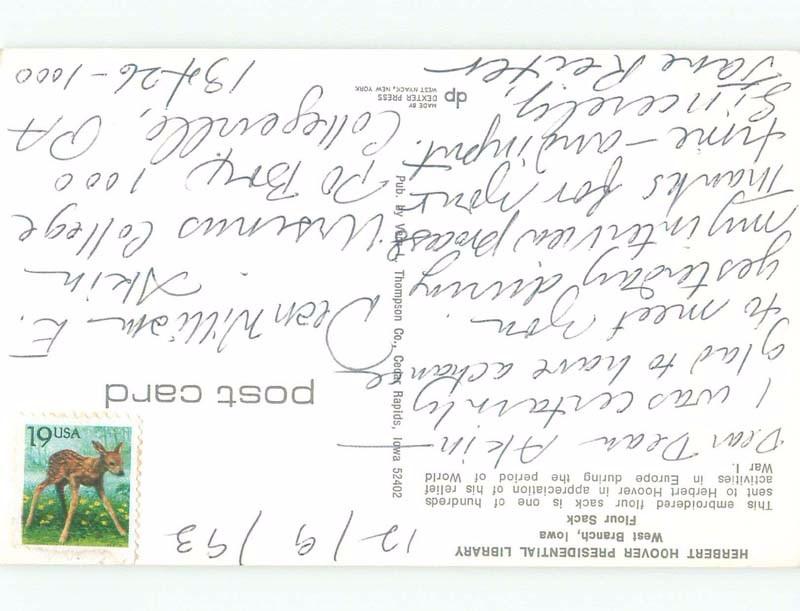 HERBERT HOOVER PRESIDENTIAL LIBRARY
West Branch, Iowa
Flour Sack
This embroidered flour sack is one of hundreds
sent to Herbert Hoover in appreciation of his relief
activities in Europe during the period of World
War I.
12/9/93
Dear Dean Akin—
I was certainly
glad to have a chance
to meet you
yesterday during
my interview process.
Thanks for your
time—and input.
Sincerely,
Jane Reiter
post card
Dean William E.
Akin
Ursinus College
PO Box 1000
Collegeville, PA
19426-1000
Pub. by Thompson Co., Cedar Rapids, Iowa 52402
dp
MADE BY
DEXTER PRESS
WEST NYACK, NEW YORK
19 USA